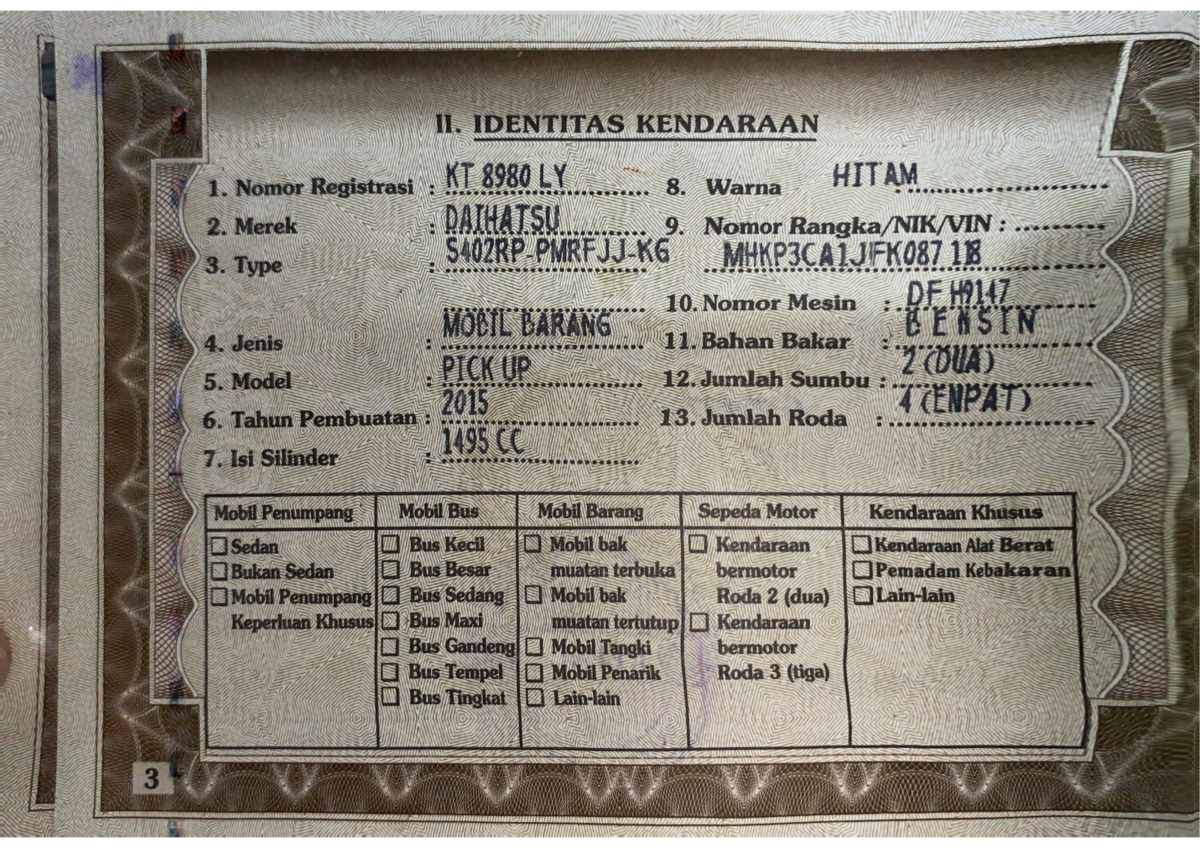 II. IDENTITAS KENDARAAN
1. Nomor Registrasi : KT 8980 LY
2. Merek : DAIHATSU
3. Type : S402RP-PMRFJJ-KG
4. Jenis : MOBIL BARANG
5. Model : PICK UP
6. Tahun Pembuatan : 2015
7. Isi Silinder : 1495 CC
8. Warna HITAM
9. Nomor Rangka/NIK/VIN :
MHKP3CA1JFK087118
10. Nomor Mesin : DFH9147
11. Bahan Bakar : BENSIN
12. Jumlah Sumbu : 2 (DUA)
13. Jumlah Roda : 4 (EMPAT)
Mobil Penumpang
Sedan
Bukan Sedan
Mobil Penumpang
Keperluan Khusus
Mobil Bus
Bus Kecil
Bus Besar
Bus Sedang
Bus Maxi
Bus Gandeng
Bus Tempel
Bus Tingkat
Mobil Barang
Mobil bak
muatan terbuka
Mobil bak
muatan tertutup
Mobil Tangki
Mobil Penarik
Lain-lain
Sepeda Motor
Kendaraan
bermotor
Roda 2 (dua)
Kendaraan
bermotor
Roda 3 (tiga)
Kendaraan Khusus
Kendaraan Alat Berat
Pemadam Kebakaran
Lain-lain
3